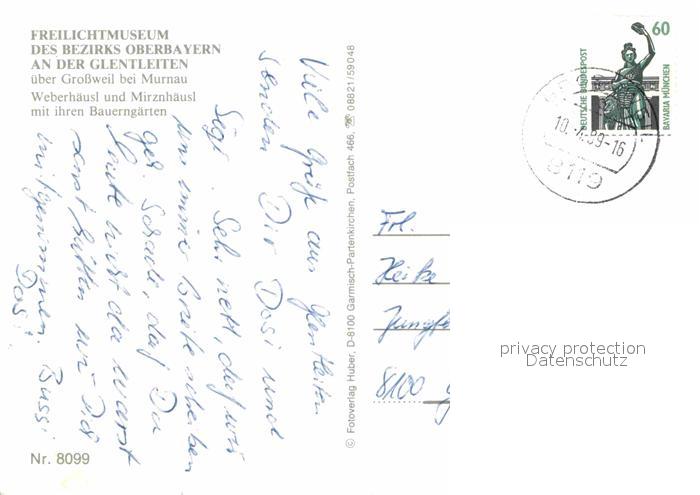 FREILICHTMUSEUM
DES BEZIRKS OBERBAYERN
AN DER GLENTLEITEN
über Großweil bei Murnau
Weberhäusl und Mirznhäusl
mit ihren Bauerngärten
Viele Grüße aus Glentleiten
senden Dir Dosi und
Sigi. Sehr nett, daß wir
uns immer Briefe schreiben
Schade, daß Du
heute nicht da warst
sonst hätten wir Dich
mitgenommen. Bussi
Dosi
Nr. 8099
© Fotoverlag Huber, D-8100 Garmisch-Partenkirchen, Postfach 466, ☏ 08821/59048
60
DEUTSCHE BUNDESPOST
BAVARIA MÜNCHEN
89-16
8119
Frl.
Heike
8100
privacy protection
Datenschutz